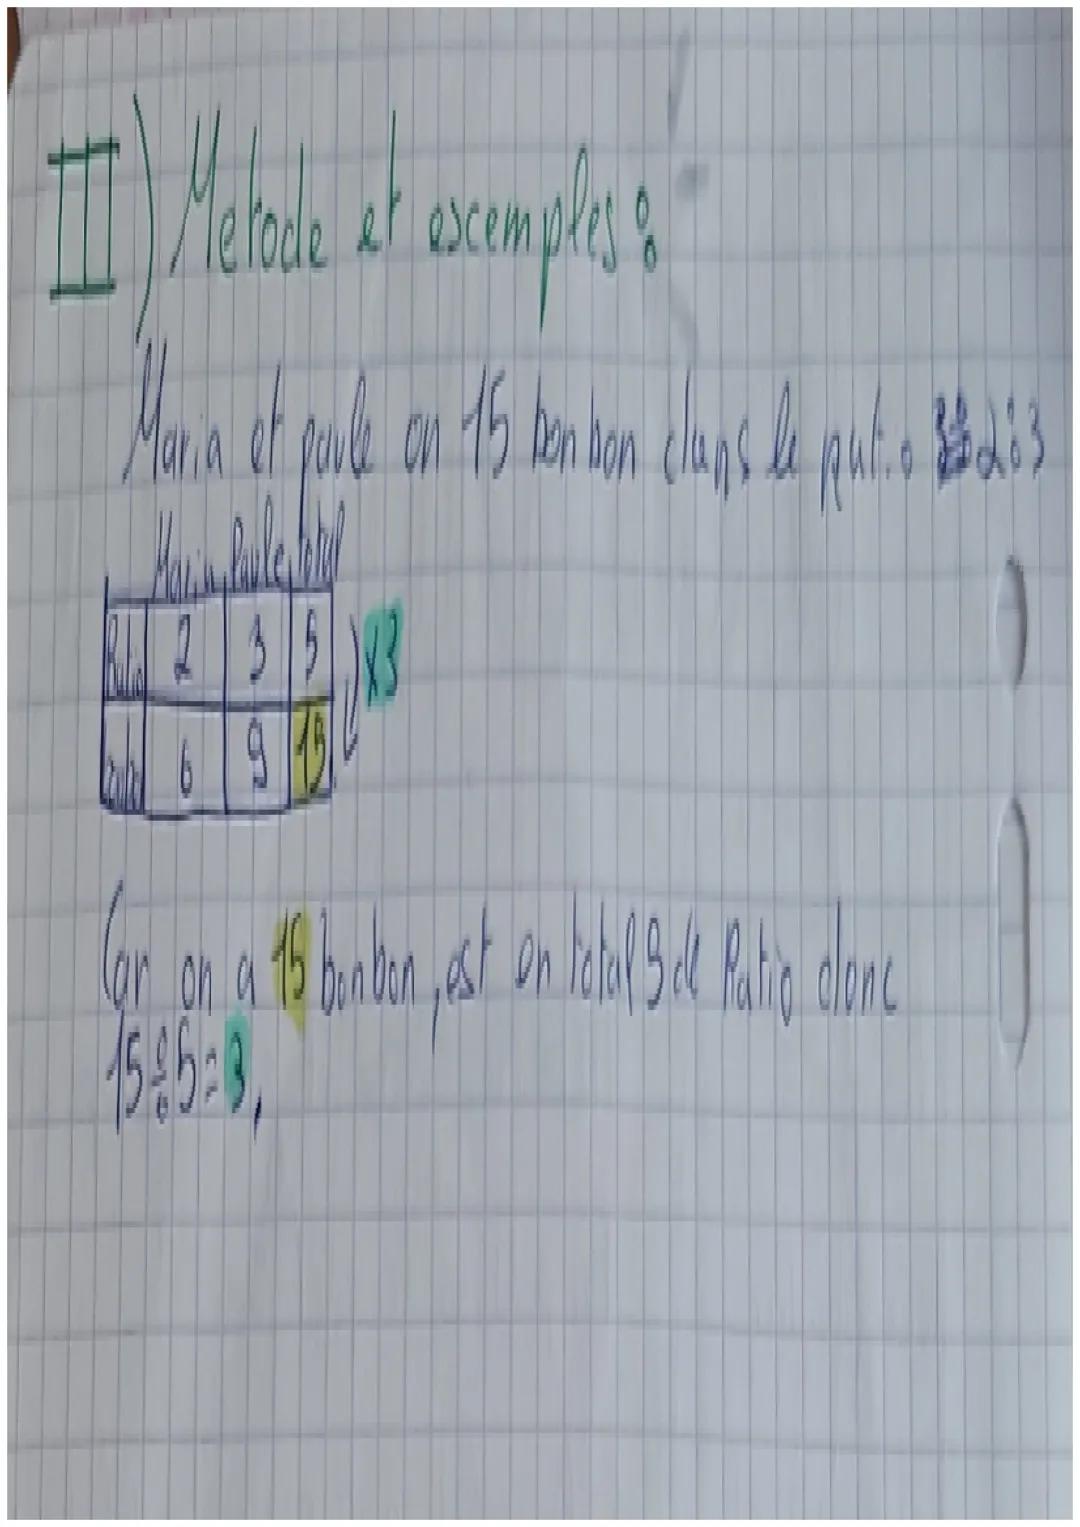 III) Metode et excemples :
Maria et paule on 15 bonbon dans le ratio 2:3
Maria Paule total
Ratio 2 3 5 x3
6 9 15
Car on a 15 bonbon, est on total 5 de Ratio donc
15÷5=3,